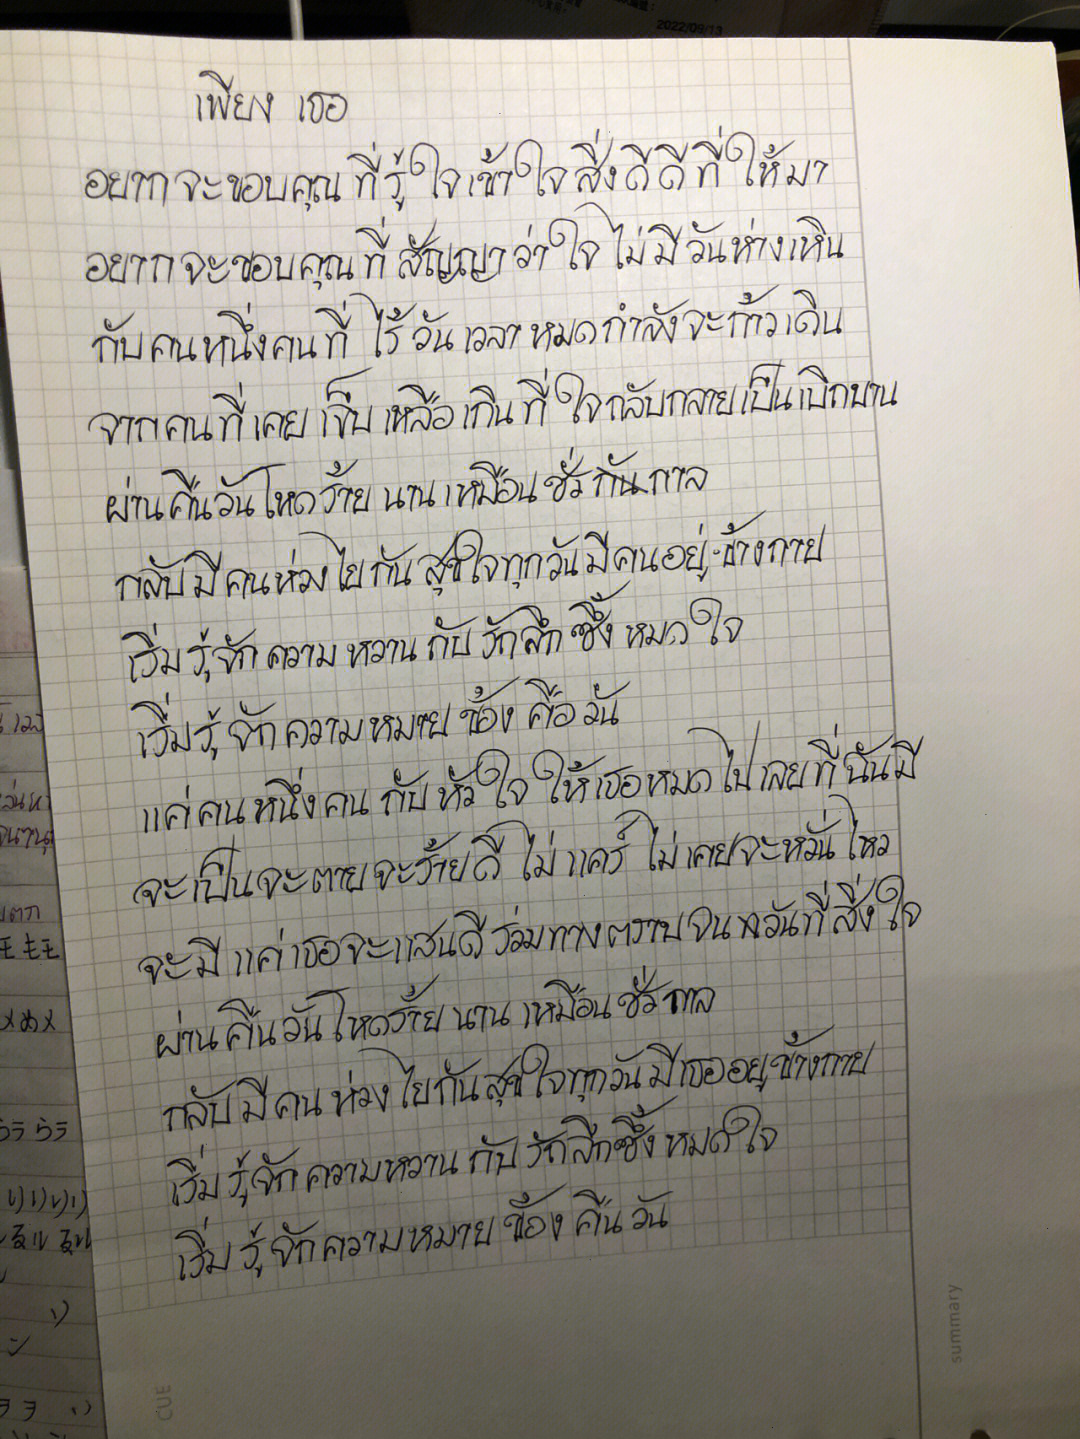 2022/09/13
เพียง เธอ
อยากจะขอบคุณ ที่รู้ใจเข้าใจสิ่งดีดีที่ให้มา
อยากจะขอบคุณที่ สัญญาว่าใจไม่มีวันห่างเหิน
กับคนหนึ่งคนที่ ไร้วันเวลา หมดกำลังจะก้าวเดิน
จากคนที่เคย เจ็บเหลือเกินที่ ใจกลับกลายเป็นเบิกบาน
ผ่านคืนวันโหดร้าย นาน เหมือน ชั่ว กัน กาล
กลับมีคนห่วงใยกัน สุขใจทุกวันมีคนอยู่ข้างกาย
เริ่ม รู้จัก ความ หวาน กับ รักลึก ซึ้ง หมด ใจ
เริ่ม รู้ จัก ความหมาย ข้อง คือ วัน
แค่ คนหนึ่งคน กับ หัวใจ ให้เธอหมดไปเลยที่ฉันมี
จะเป็นจะตายจะร้ายดี ไม่แคร์ ไม่เคยจะหวั่นไหว
จะมีแค่เธอจะแสนดีร่วมทางตราบจน วันที่สิ่งใจ
ผ่านคืนวันโหดร้าย นาน เหมือน ชั่ว กาล
กลับมีคน ห่วงใยกันสุขใจทุกวันมีเธออยู่ข้างกาย
เริ่ม รู้จัก ความหวาน กับ รักลึกซึ้ง หมดใจ
เริ่ม รู้ จักความหมาย ข้อง คืน วัน
summary
CUE